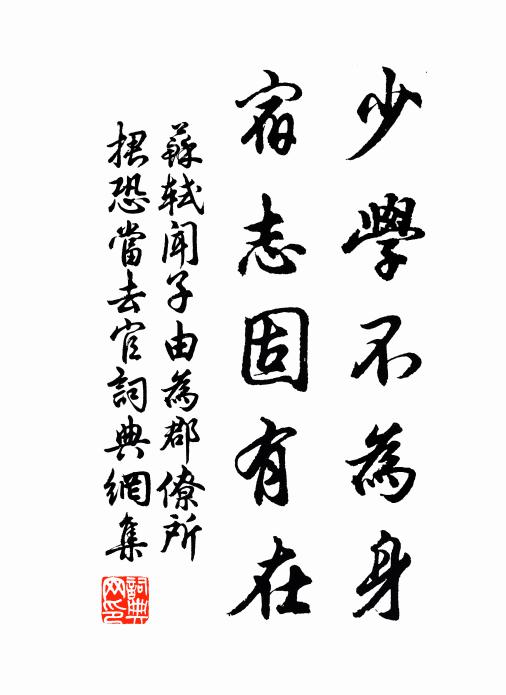 少學不為身
宿志固有在
蘇軾聞子由為郡僚所
捃恐當去官詞典網集
詞典